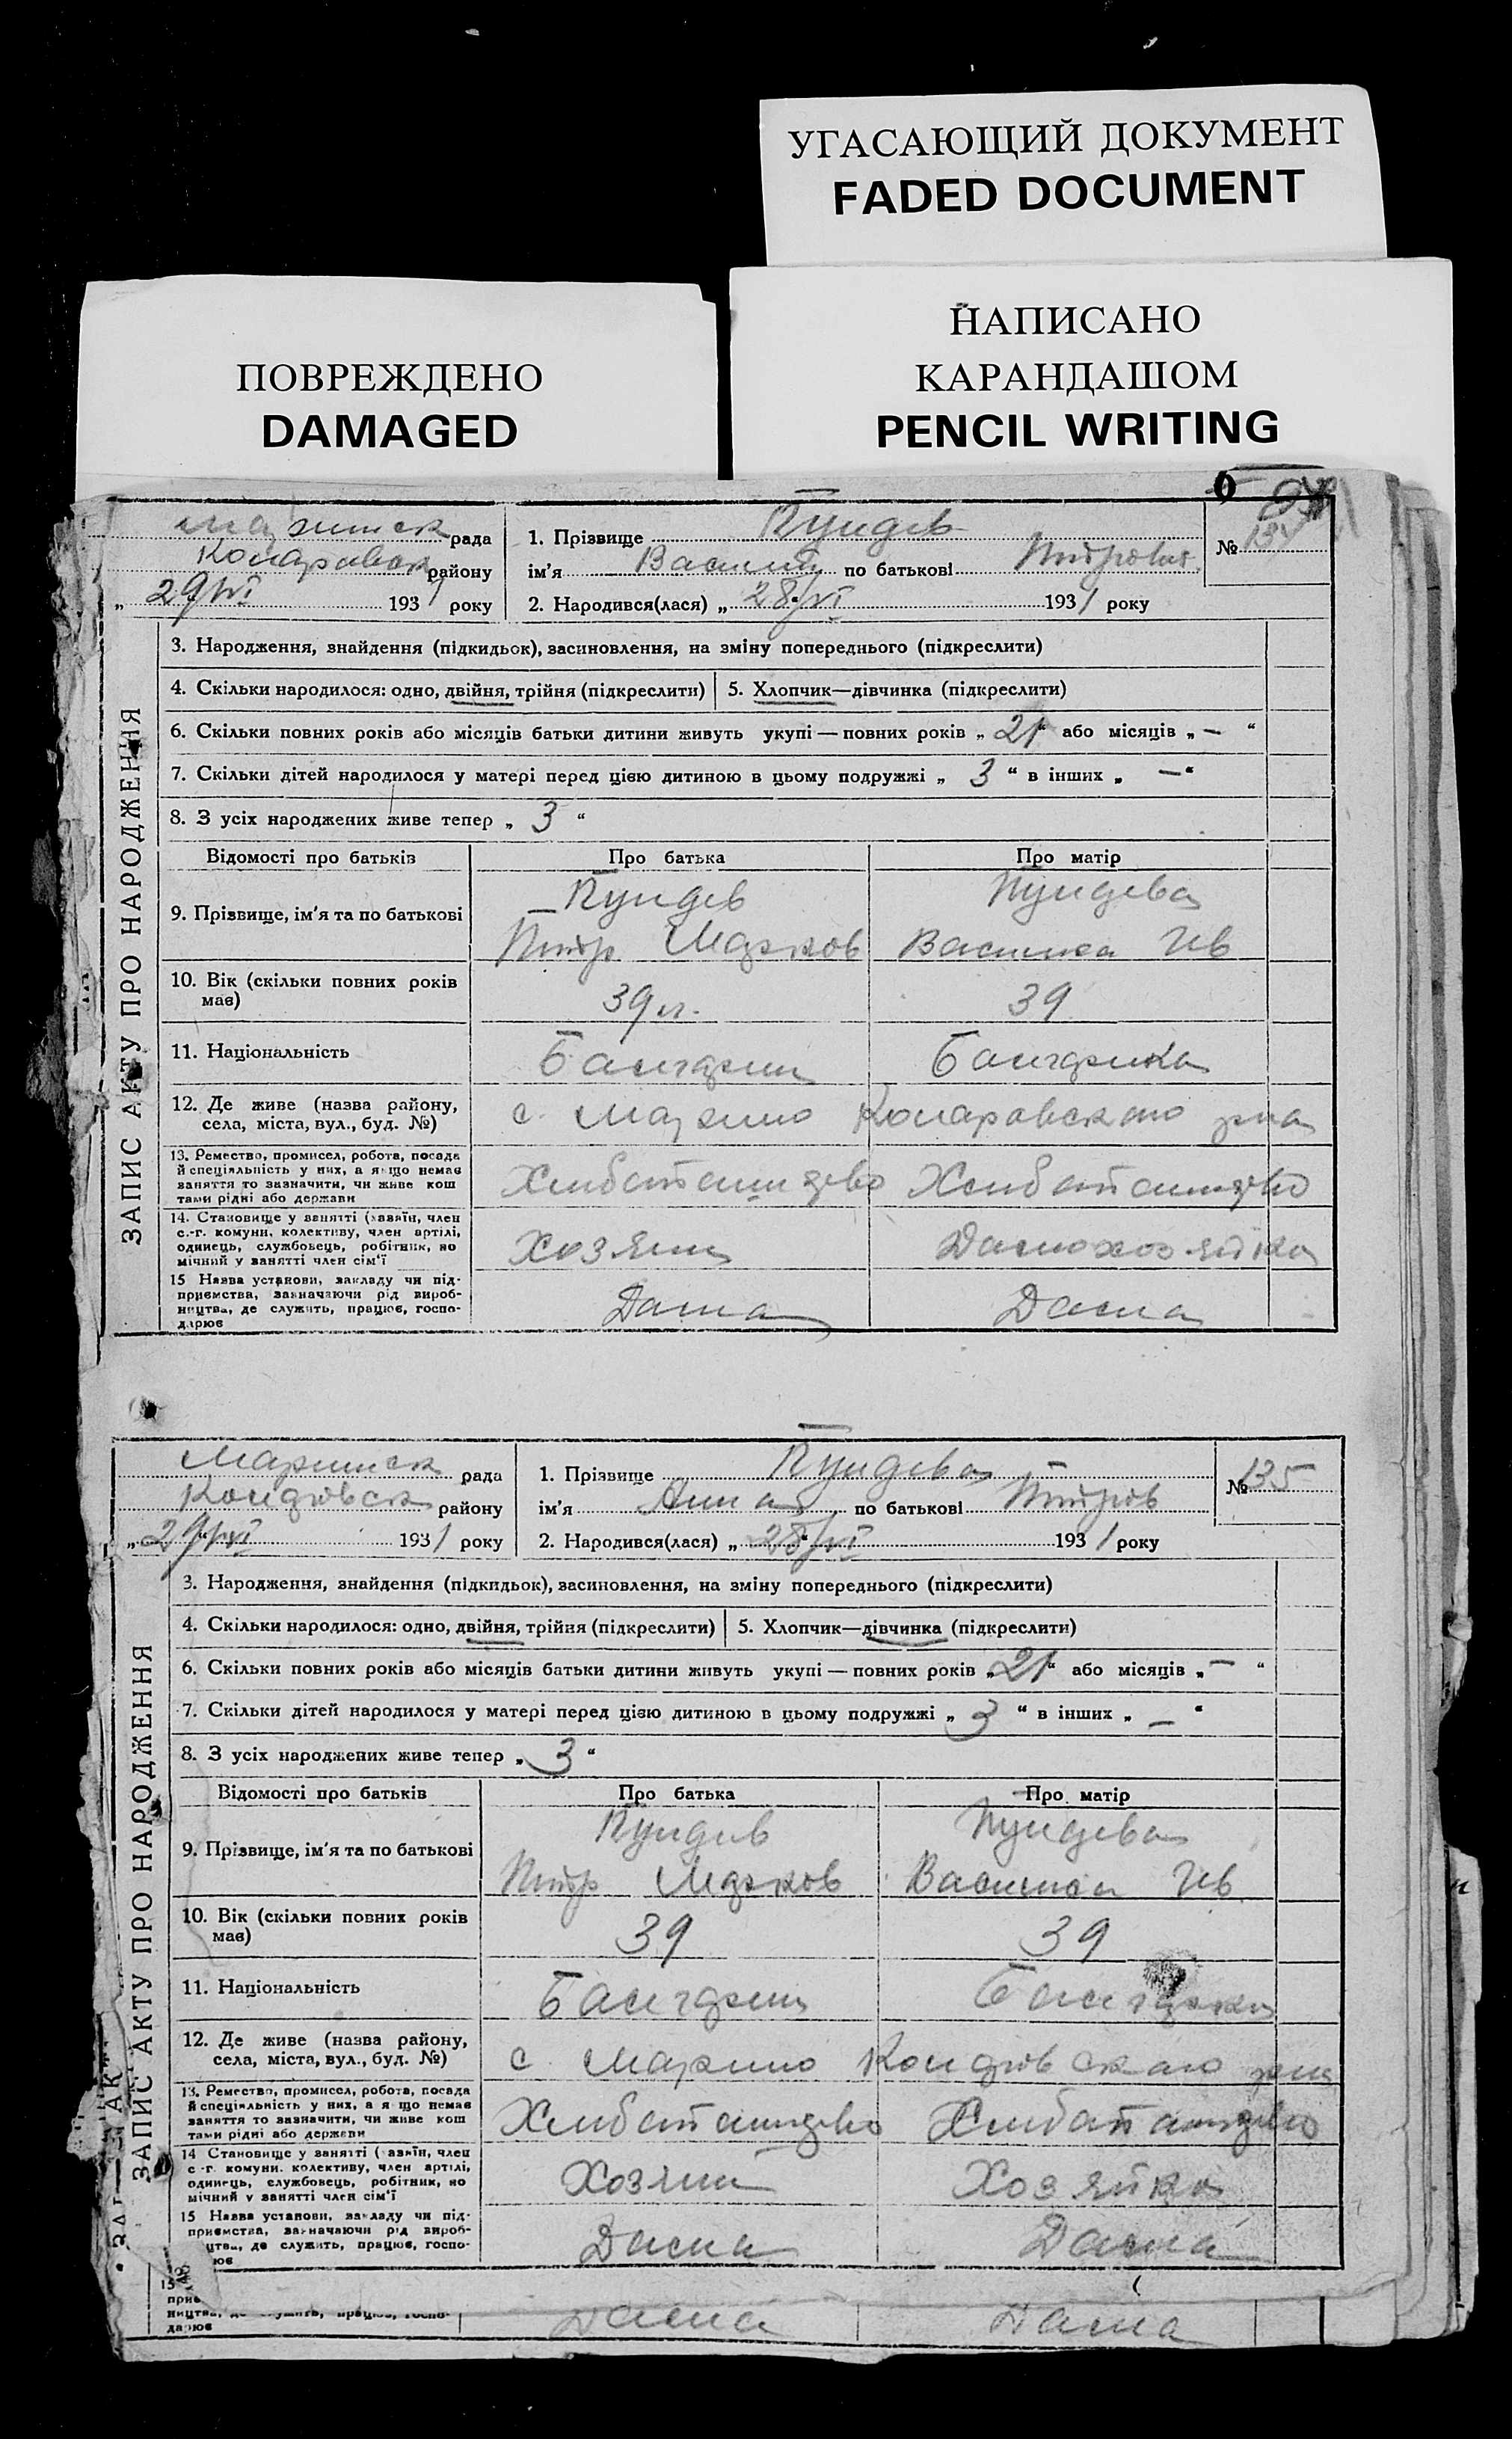 УГАСАЮЩИЙ ДОКУМЕНТ
FADED DOCUMENT
ПОВРЕЖДЕНО
DAMAGED
НАПИСАНО
КАРАНДАШОМ
PENCIL WRITING
ЗАПИС АКТУ ПРО НАРОДЖЕННЯ
рада
району
„ 29/VI 1931 року
1. Прізвище Пундев № 134
ім'я Василий по батькові Петрович
2. Народився(лася) „ 28/VI 1931 року
3. Народження, знайдення (підкидьок), засиновлення, на зміну попереднього (підкреслити)
4. Скільки народилося: одно, двійня, трійня (підкреслити) 5. Хлопчик—дівчинка (підкреслити)
6. Скільки повних років або місяців батьки дитини живуть укупі — повних років „ 21 “ або місяців „ — “
7. Скільки дітей народилося у матері перед цією дитиною в цьому подружжі „ 3 “ в інших „ — “
8. З усіх народжених живе тепер „ 3 “
Відомості про батьків Про батька Про матір
9. Прізвище, ім'я та по батькові Пундев Пундева
Петр Марков Василиса Ив
10. Вік (скільки повних років має) 39 л. 39
11. Національність Болгарин Болгарка
12. Де живе (назва району, села, міста, вул., буд. №) с. Марино рна
13. Ремество, промисел, робота, посада й спеціяльність у них, а якщо немає заняття то зазначити, чи живе коштами рідні або держави
14. Становище у занятті (хазяїн, член с.-г. комуни, колективу, член артілі, одинець, службовець, робітник, помічний у занятті член сім'ї Хозяин Домохозяйка
15 Назва установи, закладу чи підприємства, зазначаючи рід виробництва, де служить, працює, господарює Дома Дома
ЗАПИС АКТУ ПРО НАРОДЖЕННЯ
Маринск рада
району
„ 29/VI 1931 року
1. Прізвище Пундева № 135
ім'я Анна по батькові Петров
2. Народився(лася) „ 28/VI 1931 року
3. Народження, знайдення (підкидьок), засиновлення, на зміну попереднього (підкреслити)
4. Скільки народилося: одно, двійня, трійня (підкреслити) 5. Хлопчик—дівчинка (підкреслити)
6. Скільки повних років або місяців батьки дитини живуть укупі — повних років „ 21 “ або місяців „ — “
7. Скільки дітей народилося у матері перед цією дитиною в цьому подружжі „ 3 “ в інших „ — “
8. З усіх народжених живе тепер „ 3 “
Відомості про батьків Про батька Про матір
9. Прізвище, ім'я та по батькові Пундев Пундева
Петр Марков Василиса Ив
10. Вік (скільки повних років має) 39 39
11. Національність Болгарин Болгарка
12. Де живе (назва району, села, міста, вул., буд. №) с. Марино рна
13. Ремество, промисел, робота, посада й спеціяльність у них, а якщо немає заняття то зазначити, чи живе коштами рідні або держави
14 Становище у занятті (хазяїн, член с-г. комуни, колективу, член артілі, одинець, службовець, робітник, помічний у занятті член сім'ї Хозяин Хозяйка
15 Назва установи, закладу чи підприємства, зазначаючи рід виробництва, де служить, працює, господарює Дома Дома
дарює Дома Дома